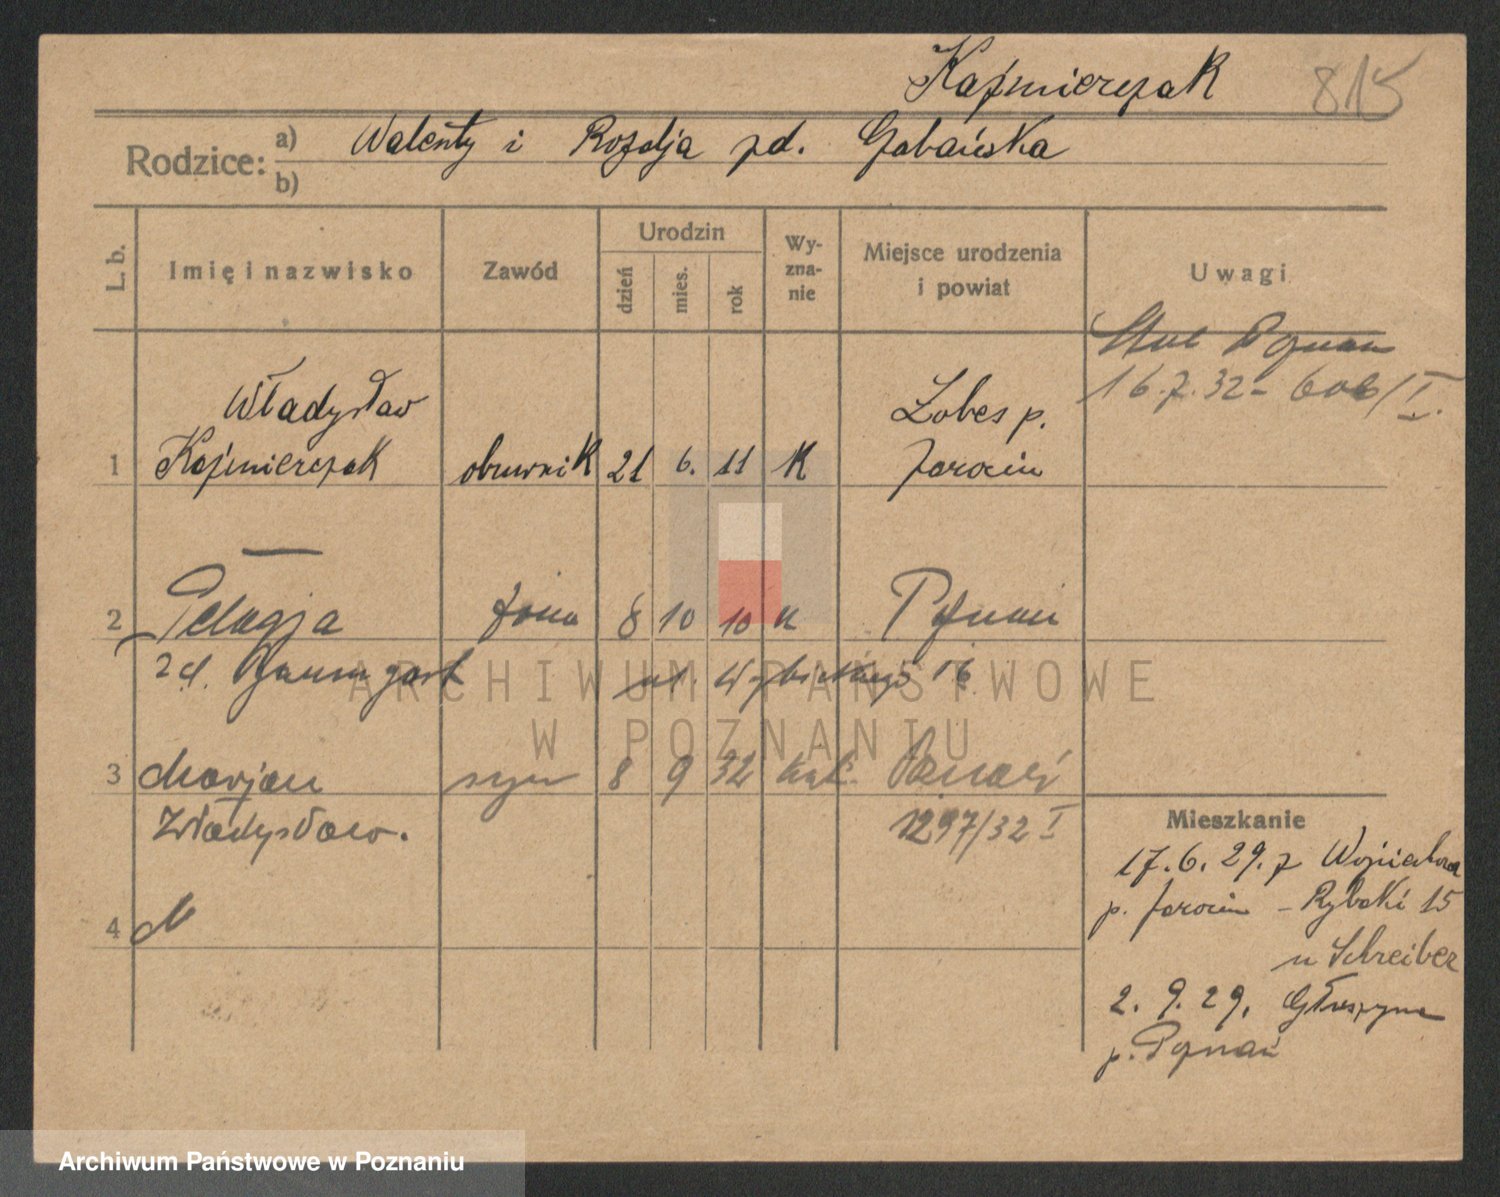 Kaźmierczak 815
Rodzice: a) Walenty i Rozalja zd. Gabańska
b)
L. b. Imię i nazwisko Zawód Urodzin Wy-
zna-
nie Miejsce urodzenia
i powiat Uwagi
dzień mies. rok
Ślub Poznań
16.7.32 - 606/I.
Władysław Łobez p.
1 Kaźmierczak obuwnik 21 6. 11 K Jarocin
2 Pelagja żona 8 10 10 K Poznań
zd. Baumgart ul. Wybickiego 16
3 Marjan syn 8 9 32 kat. Poznań
Władysław. 1297/32 I
4
Mieszkanie
17.6.29. z
p. Jarocin - Rybaki 15
u Schreiber
2. 9. 29. Głuszyna
p. Poznań
ARCHIWUM PAŃSTWOWE
W POZNANIU
Archiwum Państwowe w Poznaniu